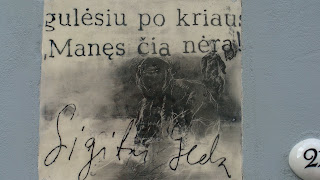 gulėsiu po kriaus
„Manęs čia nėra!
Sigitas Geda
2